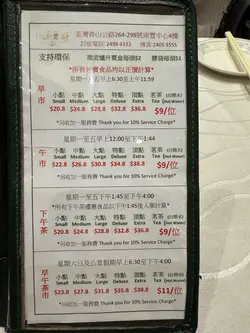 荃灣青山公路264-298號南豐中心4樓
訂座電話: 2498 4333 傳真: 2405 3555
支持環保 微波爐外賣盒每個$2 膠袋每個$1
*所有外賣食品均以正價計算*
星期一至五早上6:30至上午11:59
早市
小點 中點 大點 特點 頂點 茗茶 (白開水)
Small Medium Large Deluxe Extra Tea (Hot Water)
$20.8 $24.8 $28.8 $9/位
*另收加一服務費 Thank you for 10% Service Charge*
星期一至五早上12:00至下午1:44
午市
小點 中點 大點 特點 頂點 茗茶 (白開水)
Small Medium Large Deluxe Extra Tea (Hot Water)
$22.8 $26.8 $30.8 $34.8 $36.8 $9/位
*另收加一服務費 Thank you for 10% Service Charge*
星期一至五下午1:45至下午4:00
*所有下午茶優惠食品以下午1:45後入單計算*
下午茶
小點 中點 大點 特點 頂點 茗茶 (白開水)
Small Medium Large Deluxe Extra Tea (Hot Water)
$20.8 $24.8 $28.8 $9/位
*另收加一服務費 Thank you for 10% Service Charge*
星期六日及公眾假期早上6:30至下午4:00
早午茶市
小點 中點 大點 特點 頂點 茗茶 (白開水)
Small Medium Large Deluxe Extra Tea (Hot Water)
$23.8 $27.8 $31.8 $35.8 $38.8 $11/位
*另收加一服務費 Thank you for 10% Service Charge*